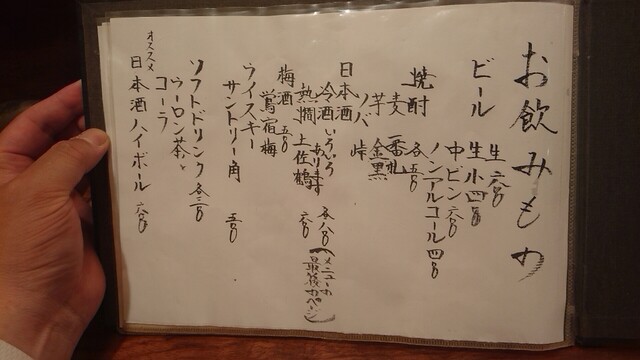 お飲みもの
ビール
生 六〇〇
生 小 四〇〇
中ビン 六〇〇
ノンアルコール 四〇〇
焼酎 各 五〇〇
麦 一番札
芋 金黒
ソバ 峠
日本酒
冷酒 いろいろあります 各八〇〇 (メニューの最後のページ)
熱燗 土佐鶴 六〇〇
梅酒 五〇〇
鶯宿梅
ウイスキー
サントリー角 五〇〇
ソフトドリンク 各三〇〇
ウーロン茶
コーラ
オススメ
日本酒ハイボール 六〇〇